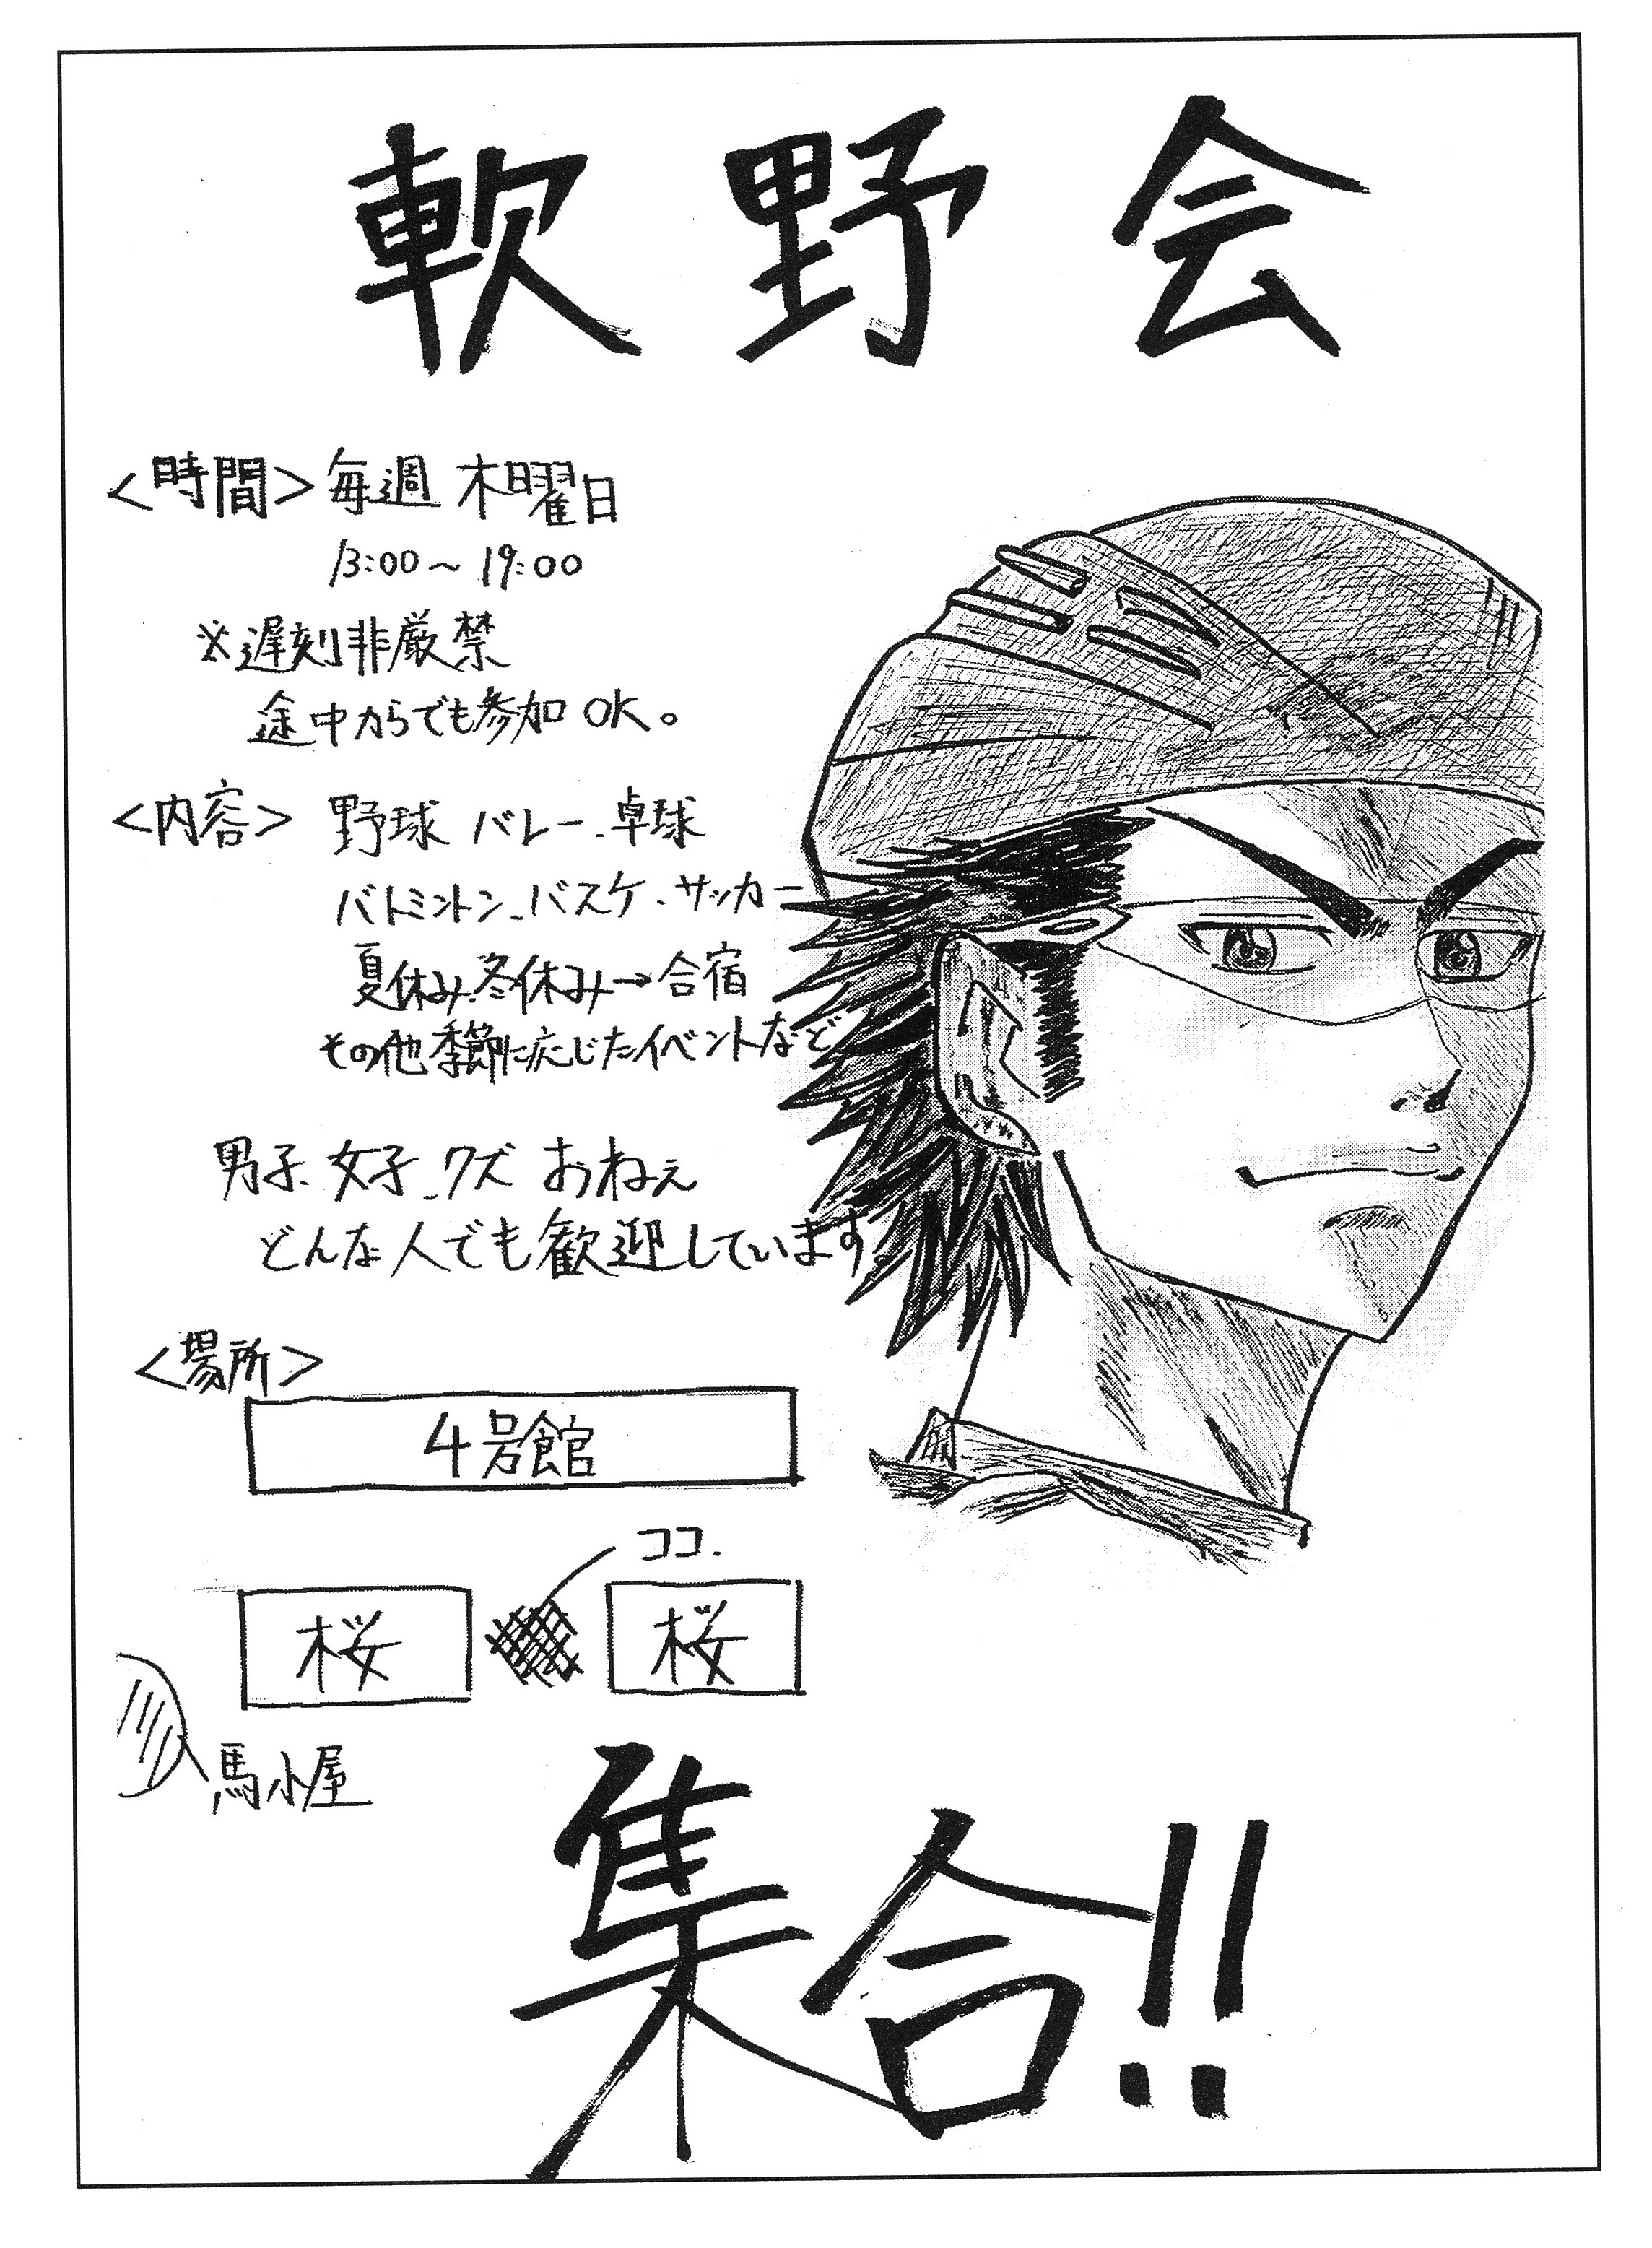 軟野会
<時間>毎週 木曜日
13:00～19:00
※遅刻非厳禁
途中からでも参加OK。
<内容> 野球 バレー、卓球
バトミントン、バスケ、サッカー
夏休み、冬休み→合宿
その他季節に応じたイベントなど
男子、女子、クズ おねぇ
どんな人でも歓迎しています
<場所>
4号館
ココ.
桜 桜
馬小屋
集合!!